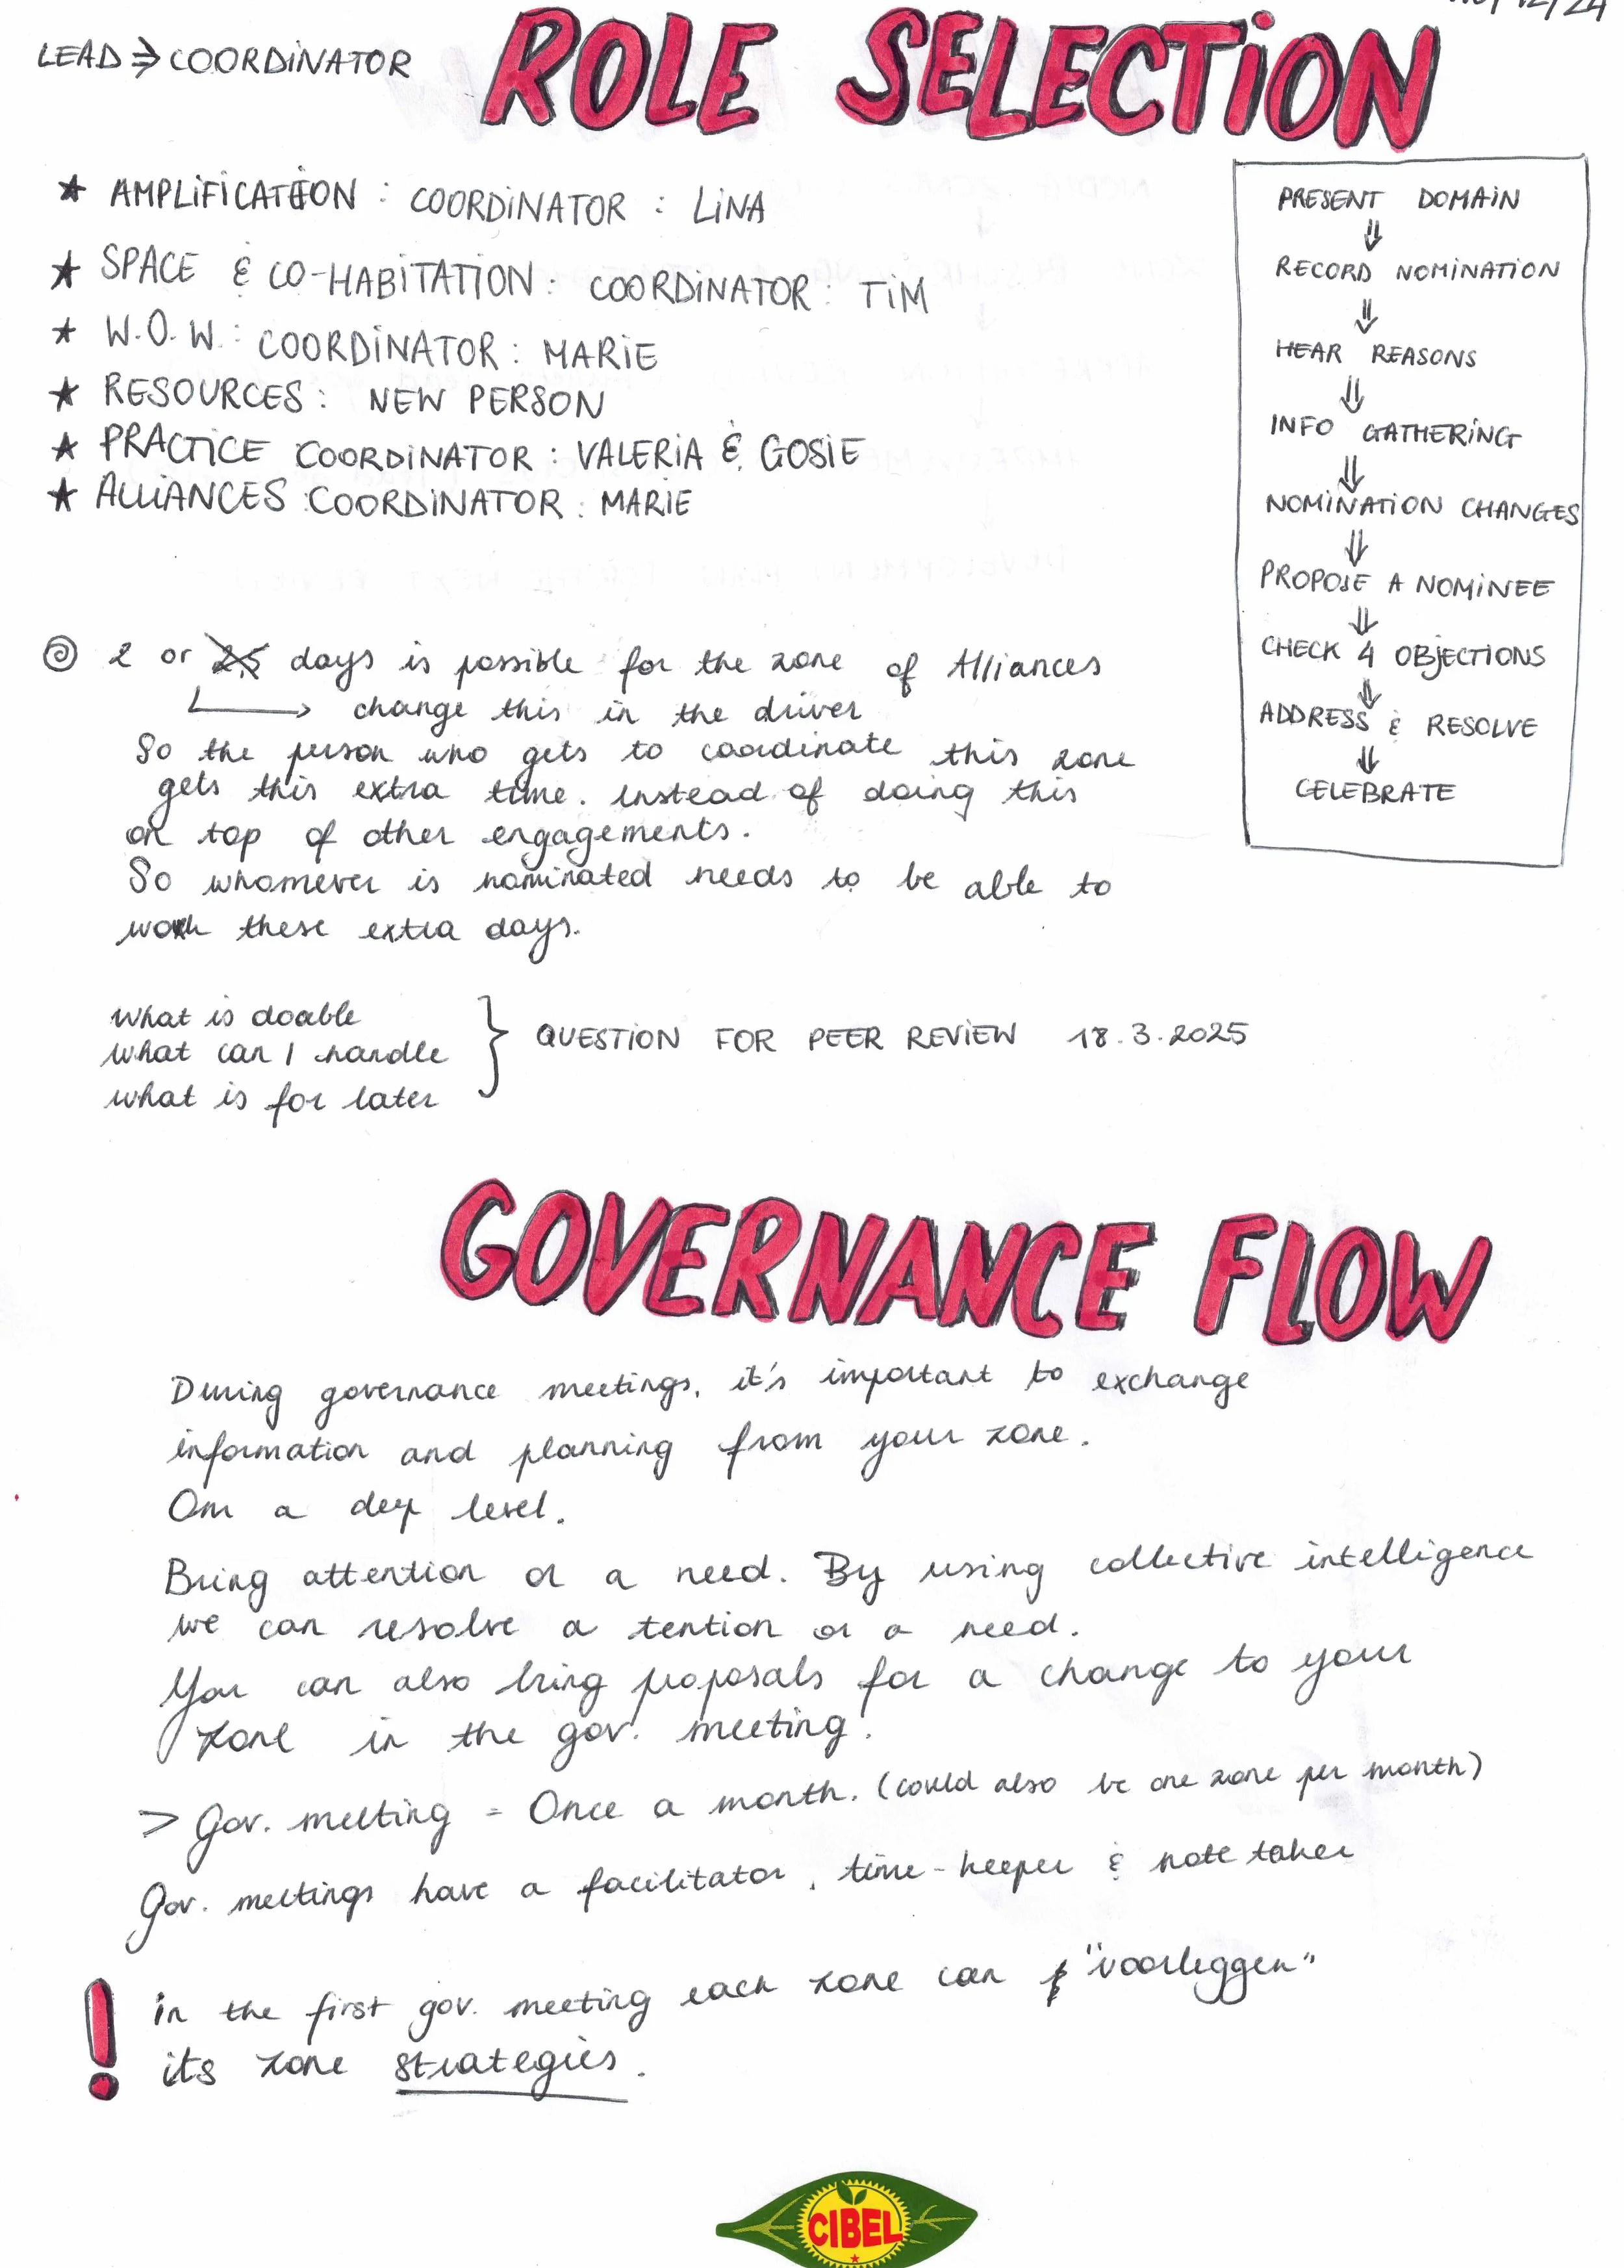 12/24
LEAD ⇒ COORDINATOR
ROLE SELECTION
★ AMPLIFICATION : COORDINATOR : LINA
★ SPACE & CO-HABITATION : COORDINATOR : TIM
★ W.O.W. : COORDINATOR : MARIE
★ RESOURCES : NEW PERSON
★ PRACTICE COORDINATOR : VALERIA & GOSIE
★ ALLIANCES COORDINATOR : MARIE
PRESENT DOMAIN
⇓
RECORD NOMINATION
⇓
HEAR REASONS
⇓
INFO GATHERING
⇓
NOMINATION CHANGES
⇓
PROPOSE A NOMINEE
⇓
CHECK 4 OBJECTIONS
⇓
ADDRESS & RESOLVE
⇓
CELEBRATE
2 or 2,5 days is possible for the zone of Alliances
→ change this in the driver
So the person who gets to coordinate this zone
gets this extra time. instead of doing this
on top of other engagements.
So whomever is nominated needs to be able to
work these extra days.
what is doable
what can I handle
what is for later
} QUESTION FOR PEER REVIEW 18.3.2025
GOVERNANCE FLOW
During governance meetings, it's important to exchange
information and planning from your zone.
Om a deep level.
Bring attention or a need. By using collective intelligence
we can resolve a tention or a need.
You can also bring proposals for a change to your
zone in the gov. meeting.
> Gov. meeting = Once a month. (could also be one zone per month)
Gov. meetings have a facilitator, time-keeper & note taker
! in the first gov. meeting each zone can "voorleggen"
its zone strategies.
CIBEL